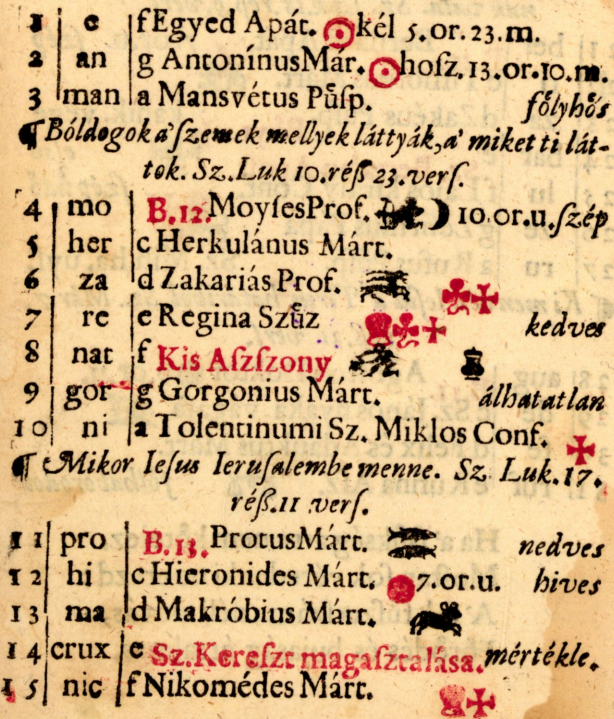 1 e f Egyed Apát. kél 5. or. 23. m.
2 an g Antonínus Már. hoſz. 13. or. 10. m.
3 man a Mansvétus Pűſp. fólyhós
¶ Bóldogok a' ſzemek mellyek láttyák, a' miket ti lát-
tok. Sz. Luk 10. réſz 23. verſ.
4 mo B. 12. Moyſes Prof. ☽ 10 or. u. ſzép
5 her c Herkulánus Márt.
6 za d Zakariás Prof.
7 re e Regina Szűz kedves
8 nat f Kis Aſzſzony
9 gor g Gorgonius Márt. álhatatlan
10 ni a Tolentinumi Sz. Miklos Conf.
¶ Mikor Ieſus Ieruſalembe menne. Sz. Luk. 17.
réſz. 11 verſ.
11 pro B. 13. Protus Márt. nedves
12 hi c Hieronides Márt. 7. or. u. hives
13 ma d Makróbius Márt.
14 crux e Sz. Kereſzt magaſztalása. mértékle.
15 nic f Nikomédes Márt.